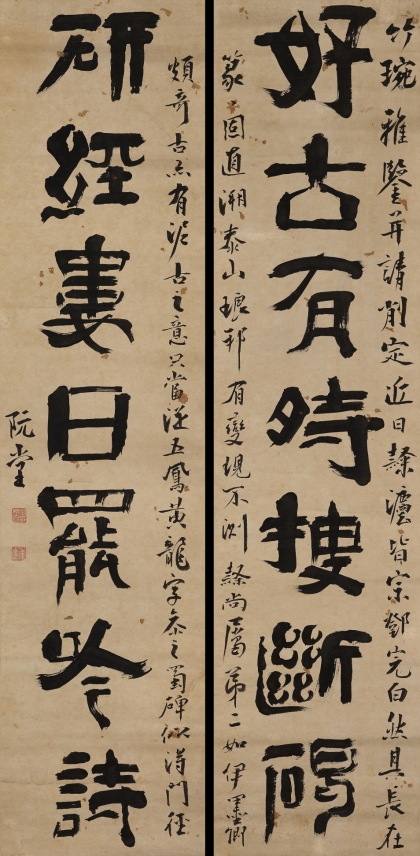 竹琬雅鑒并請削定近日隸灋皆宗鄧完白然其長在
好古有時搜斷碣
篆〻固直溯泰山琅邪有變現不測隸尚屬第二如伊墨卿
頗奇古亦有泥古之意只當從五鳳黃龍字參之蜀碑似得門徑
硏經婁日罷吟詩
阮堂